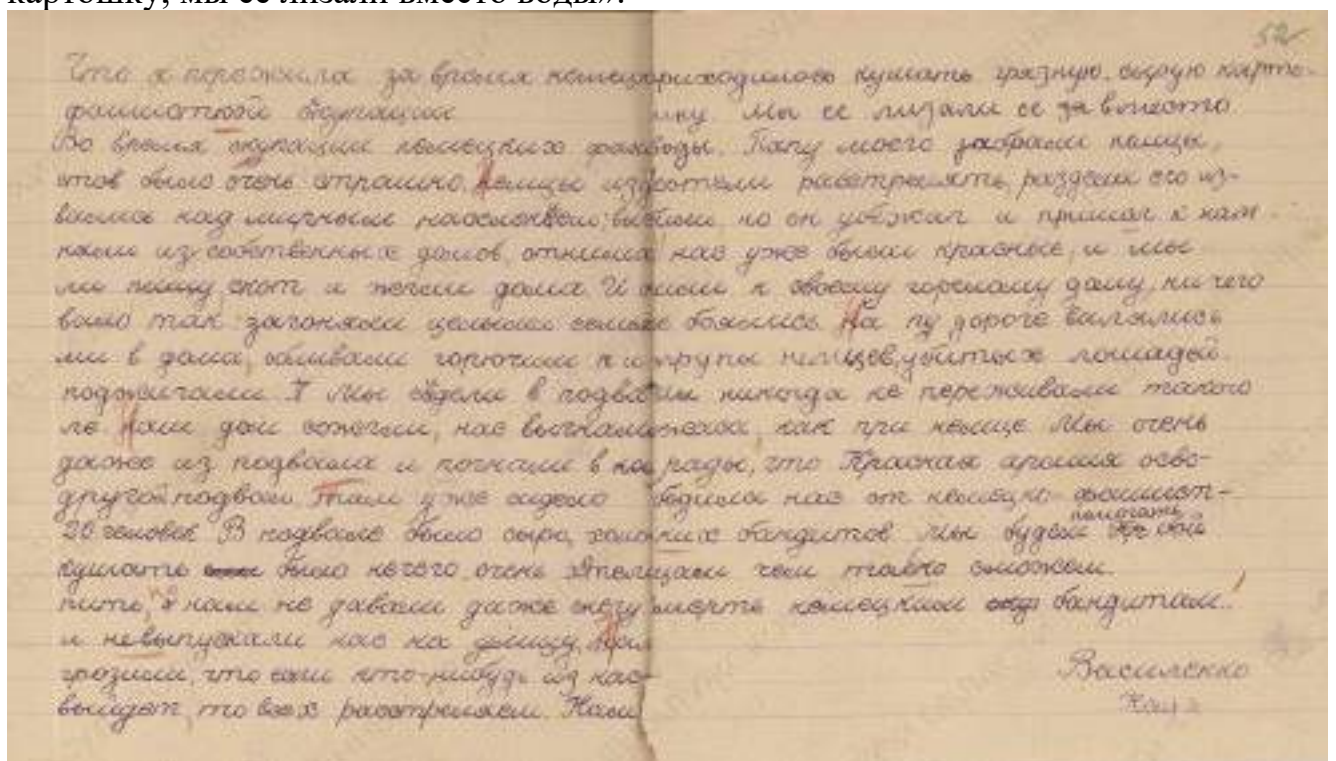 картошку, мы ее лизали вместо воды».
52
Что я пережила за время немецко
фашисткой окупации
Во время окупации немецких фаш
стов было очень страшно, немцы изде
вались над мирным населением: выго
няли из собственных домов, отнима
ли пищу, скот и жгли дома. И
было так загоняли целыми семья
ми в дома, обливали горючим и
поджигали. Мы сидели в подва
ле. Наш дом сожгли, нас выгнали
даже из подвала и погнали в
другой подвал. Там уже сидело
20 человек. В подвале было сыро,
кушать было нечего, очень хотелось
пить, нам не давали даже снегу
и невыпускали нас на улицу,
грозили, что если кто-нибудь из нас
выйдет, то всех расстреляем. Нам
приходилось кушать грязную, сырую карто-
шку. Мы ее лизали ее за вместо
воды. Папу моего забрали немцы,
хотели расстрелять, раздели его из-
били, но он убежал и пришел к нам.
У нас уже были красные, и мы
шли к своему горелому дому, ни чего
не боялись. На пу дороге валялись
трупы немцев, убитых лошадей.
Мы никогда не переживали такого
ужаса, как при немце. Мы очень
рады, что Красная армия осво-
бодила нас от немецко-фашист-
ких бандитов. Мы будем помогать
бойцам чем только сможем.
Смерть немецким бандитам!
Василенко